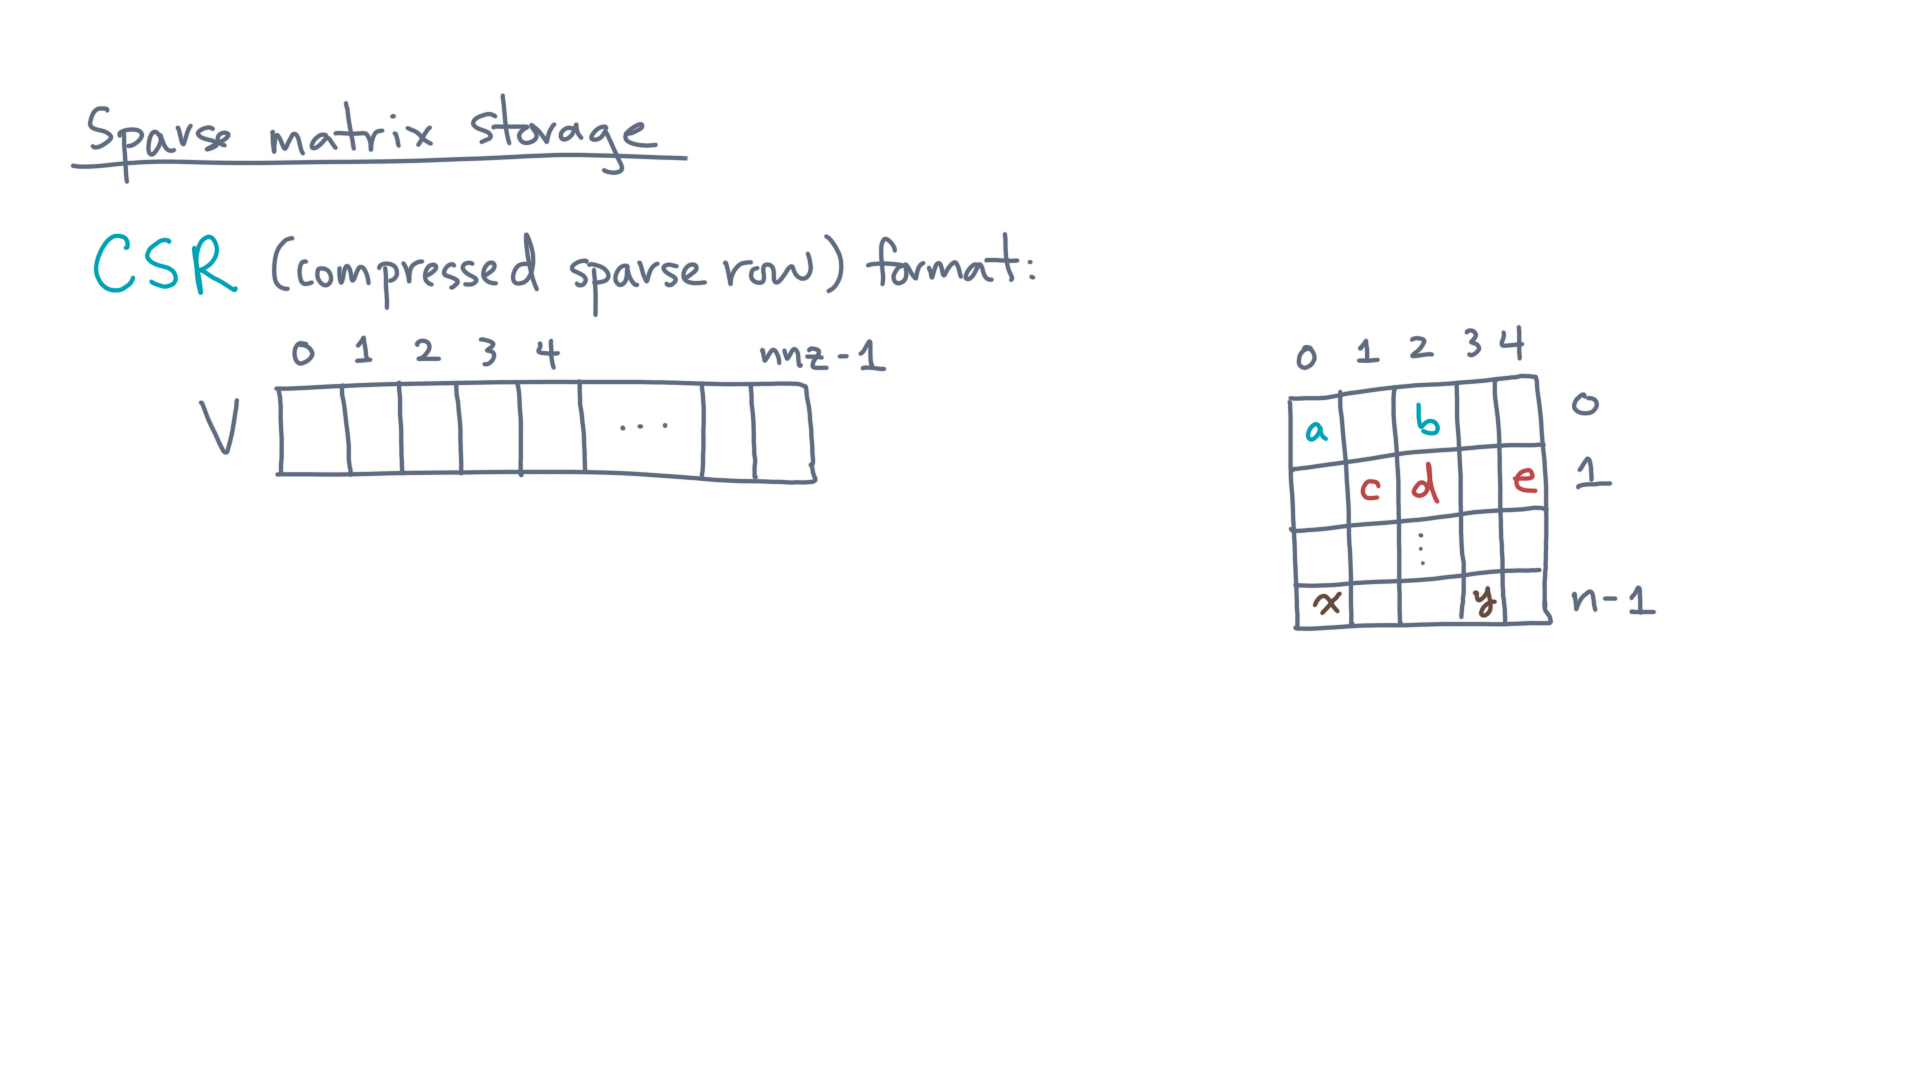 Sparse matrix storage
CSR (compressed sparse row) format:
0 1 2 3 4 nnz-1
V ...
0 1 2 3 4
a b 0
c d e 1
⋮
x y n-1